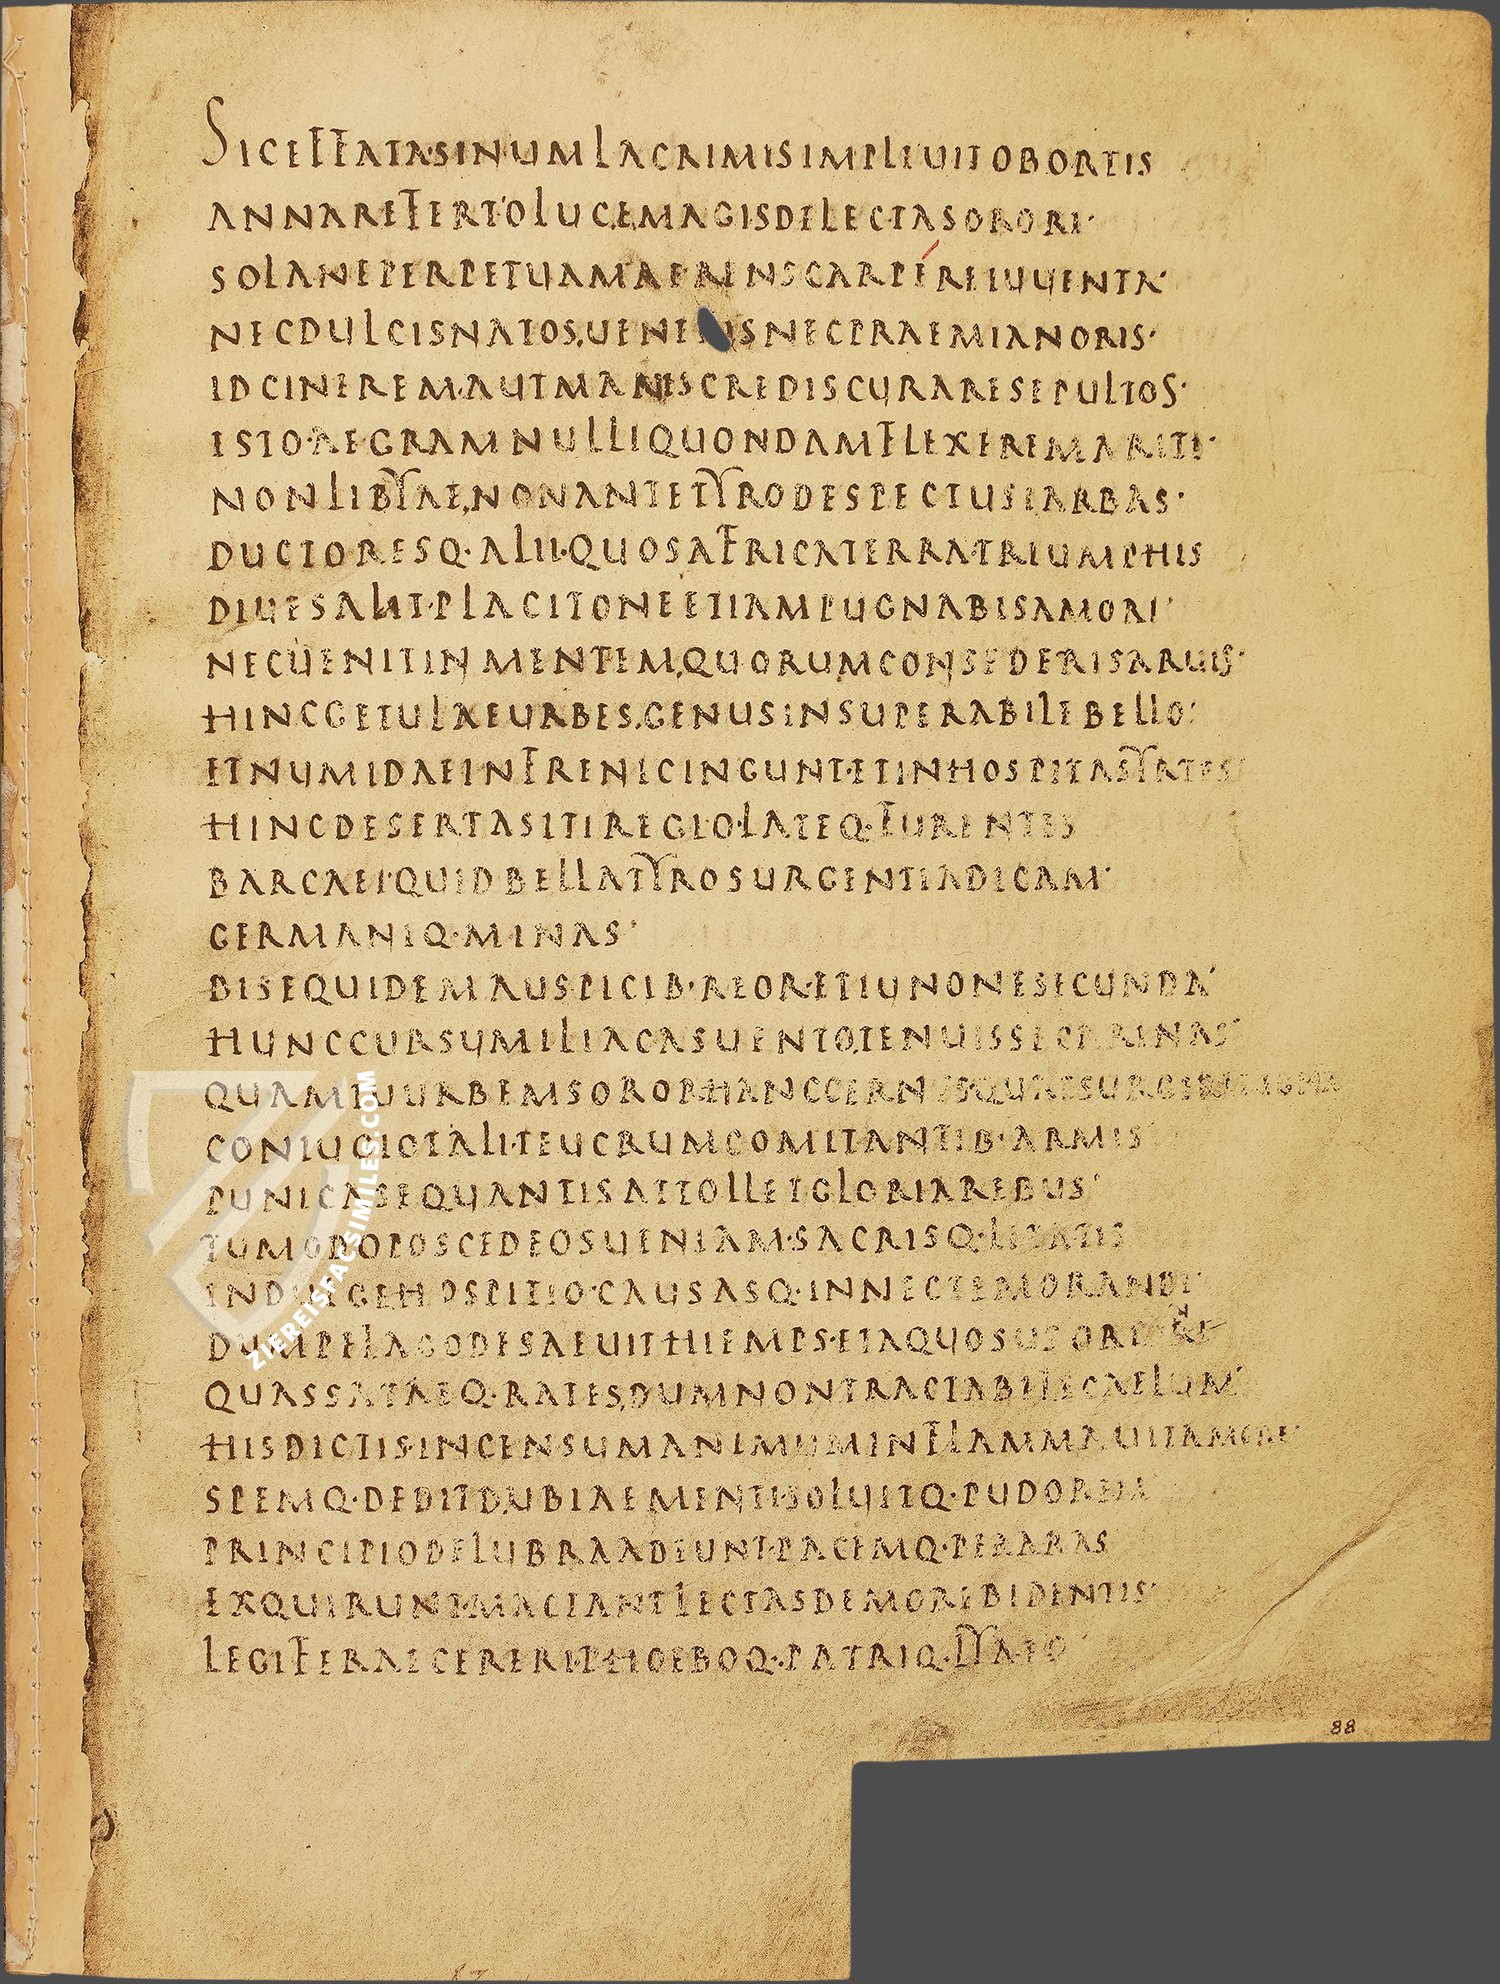 SICEFFATASINUMLACRIMISIMPLEUITOBORTIS
ANNAREFERT·OLUCEMAGISDILECTASORORI·
SOLANEPERPETUAMAERENSCARPEREIUUENTA·
NECDULCISNATOS,UENERISNECPRAEMIANORIS·
IDCINEREM·AUTMANISCREDISCURARESEPULTOS·
ISTO·AEGRAMNULLIQUONDAMFLEXEREMARITI·
NONLIBYAE,NONANTETYRODESPECTUSIARBAS·
DUCTORESQ·ALII·QUOSAFRICATERRA·TRIUMPHIS
DIUESALIT·PLACITONEETIAMPUGNABISAMORI·
NECUENITINMENTEM,QUORUMCONSEDERISARUIS·
HINCGETULAEURBES,GENUSINSUPERABILEBELLO:
ETNUMIDAEINFRENICINGUNT·ETINHOSPITASYRTES
HINCDESERTASITIREGIO·LATEQ·FURENTES
BARCAEI·QUIDBELLATYROSURGENTIADICAM·
GERMANIQ·MINAS·
BISEQUIDEMAUSPICIB·REOR·ETIUNONESECUNDA·
HUNCCURSUMILIACASUENTO,TENUISSECARINAS·
QUAMTUURBEMSORORHANCCERNESQUAESURGERE
CONIUGIOTALI·TEUCRUMCOMITANTIB·ARMIS
PUNICASEQUANTISATTOLLETGLORIAREBUS·
TUMODOPOSCEDEOSUENIAM·SACRISQ·LITATIS
INDULGEHOSPITIO·CAUSASQ·INNECTEMORANDI·
DUMPELAGODESAEUITHIEMPS·ETAQUOSUSORI
QUASSATAEQ·RATES,DUMNONTRACTABILECAELUM·
HISDICTIS·INCENSUMANIMUMINFLAMMAUITAMORE·
SPEMQ·DEDITDUBIAEMENTI·SOLUITQ·PUDOREM
PRINCIPIODELUBRAADEUNT·PACEMQ·PERARAS
EXQUIRUNT·MACTANTLECTASDEMOREBIDENTIS·
LEGIFERAECERERI·PHOEBOQ·PATRIQ·LYAEO
88
ZIEREISFACSIMILES.COM